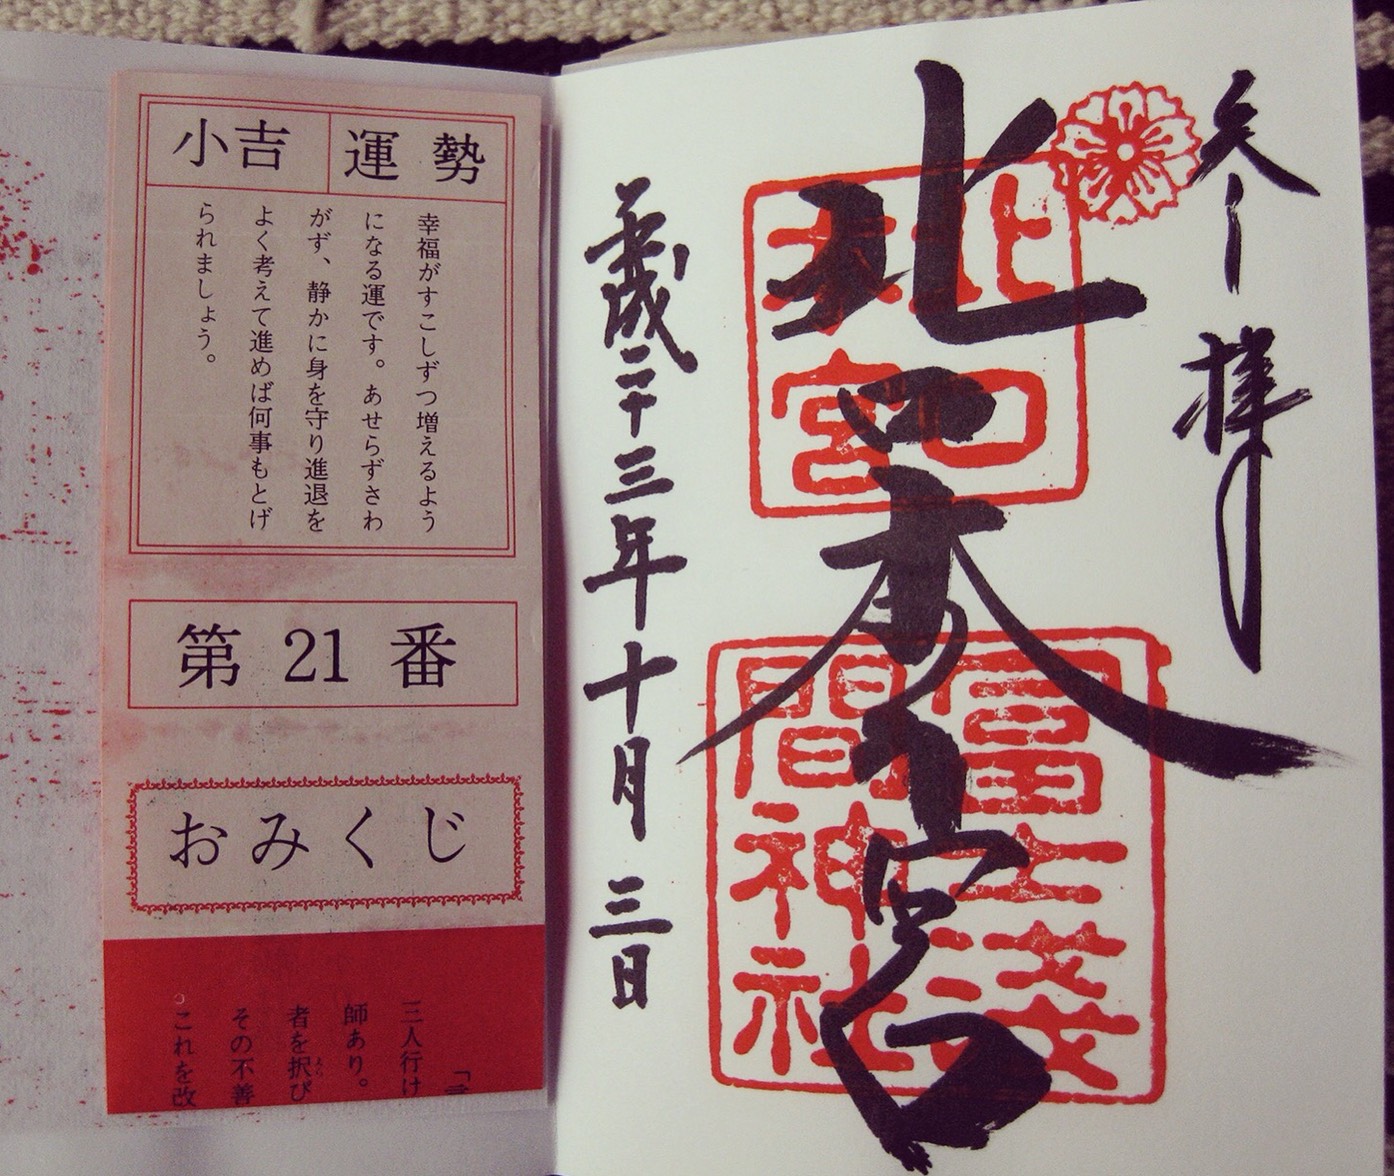 参拝
北口本宮
北口
本宮
冨士浅
間神社
平成二十三年十月三日
小吉 運勢
幸福がすこしずつ増えるよう
になる運です。あせらずさわ
がず、静かに身を守り進退を
よく考えて進めば何事もとげ
られましょう。
第 21 番
おみくじ
三人行け
師あり。
者を択び
その不善
。これを改